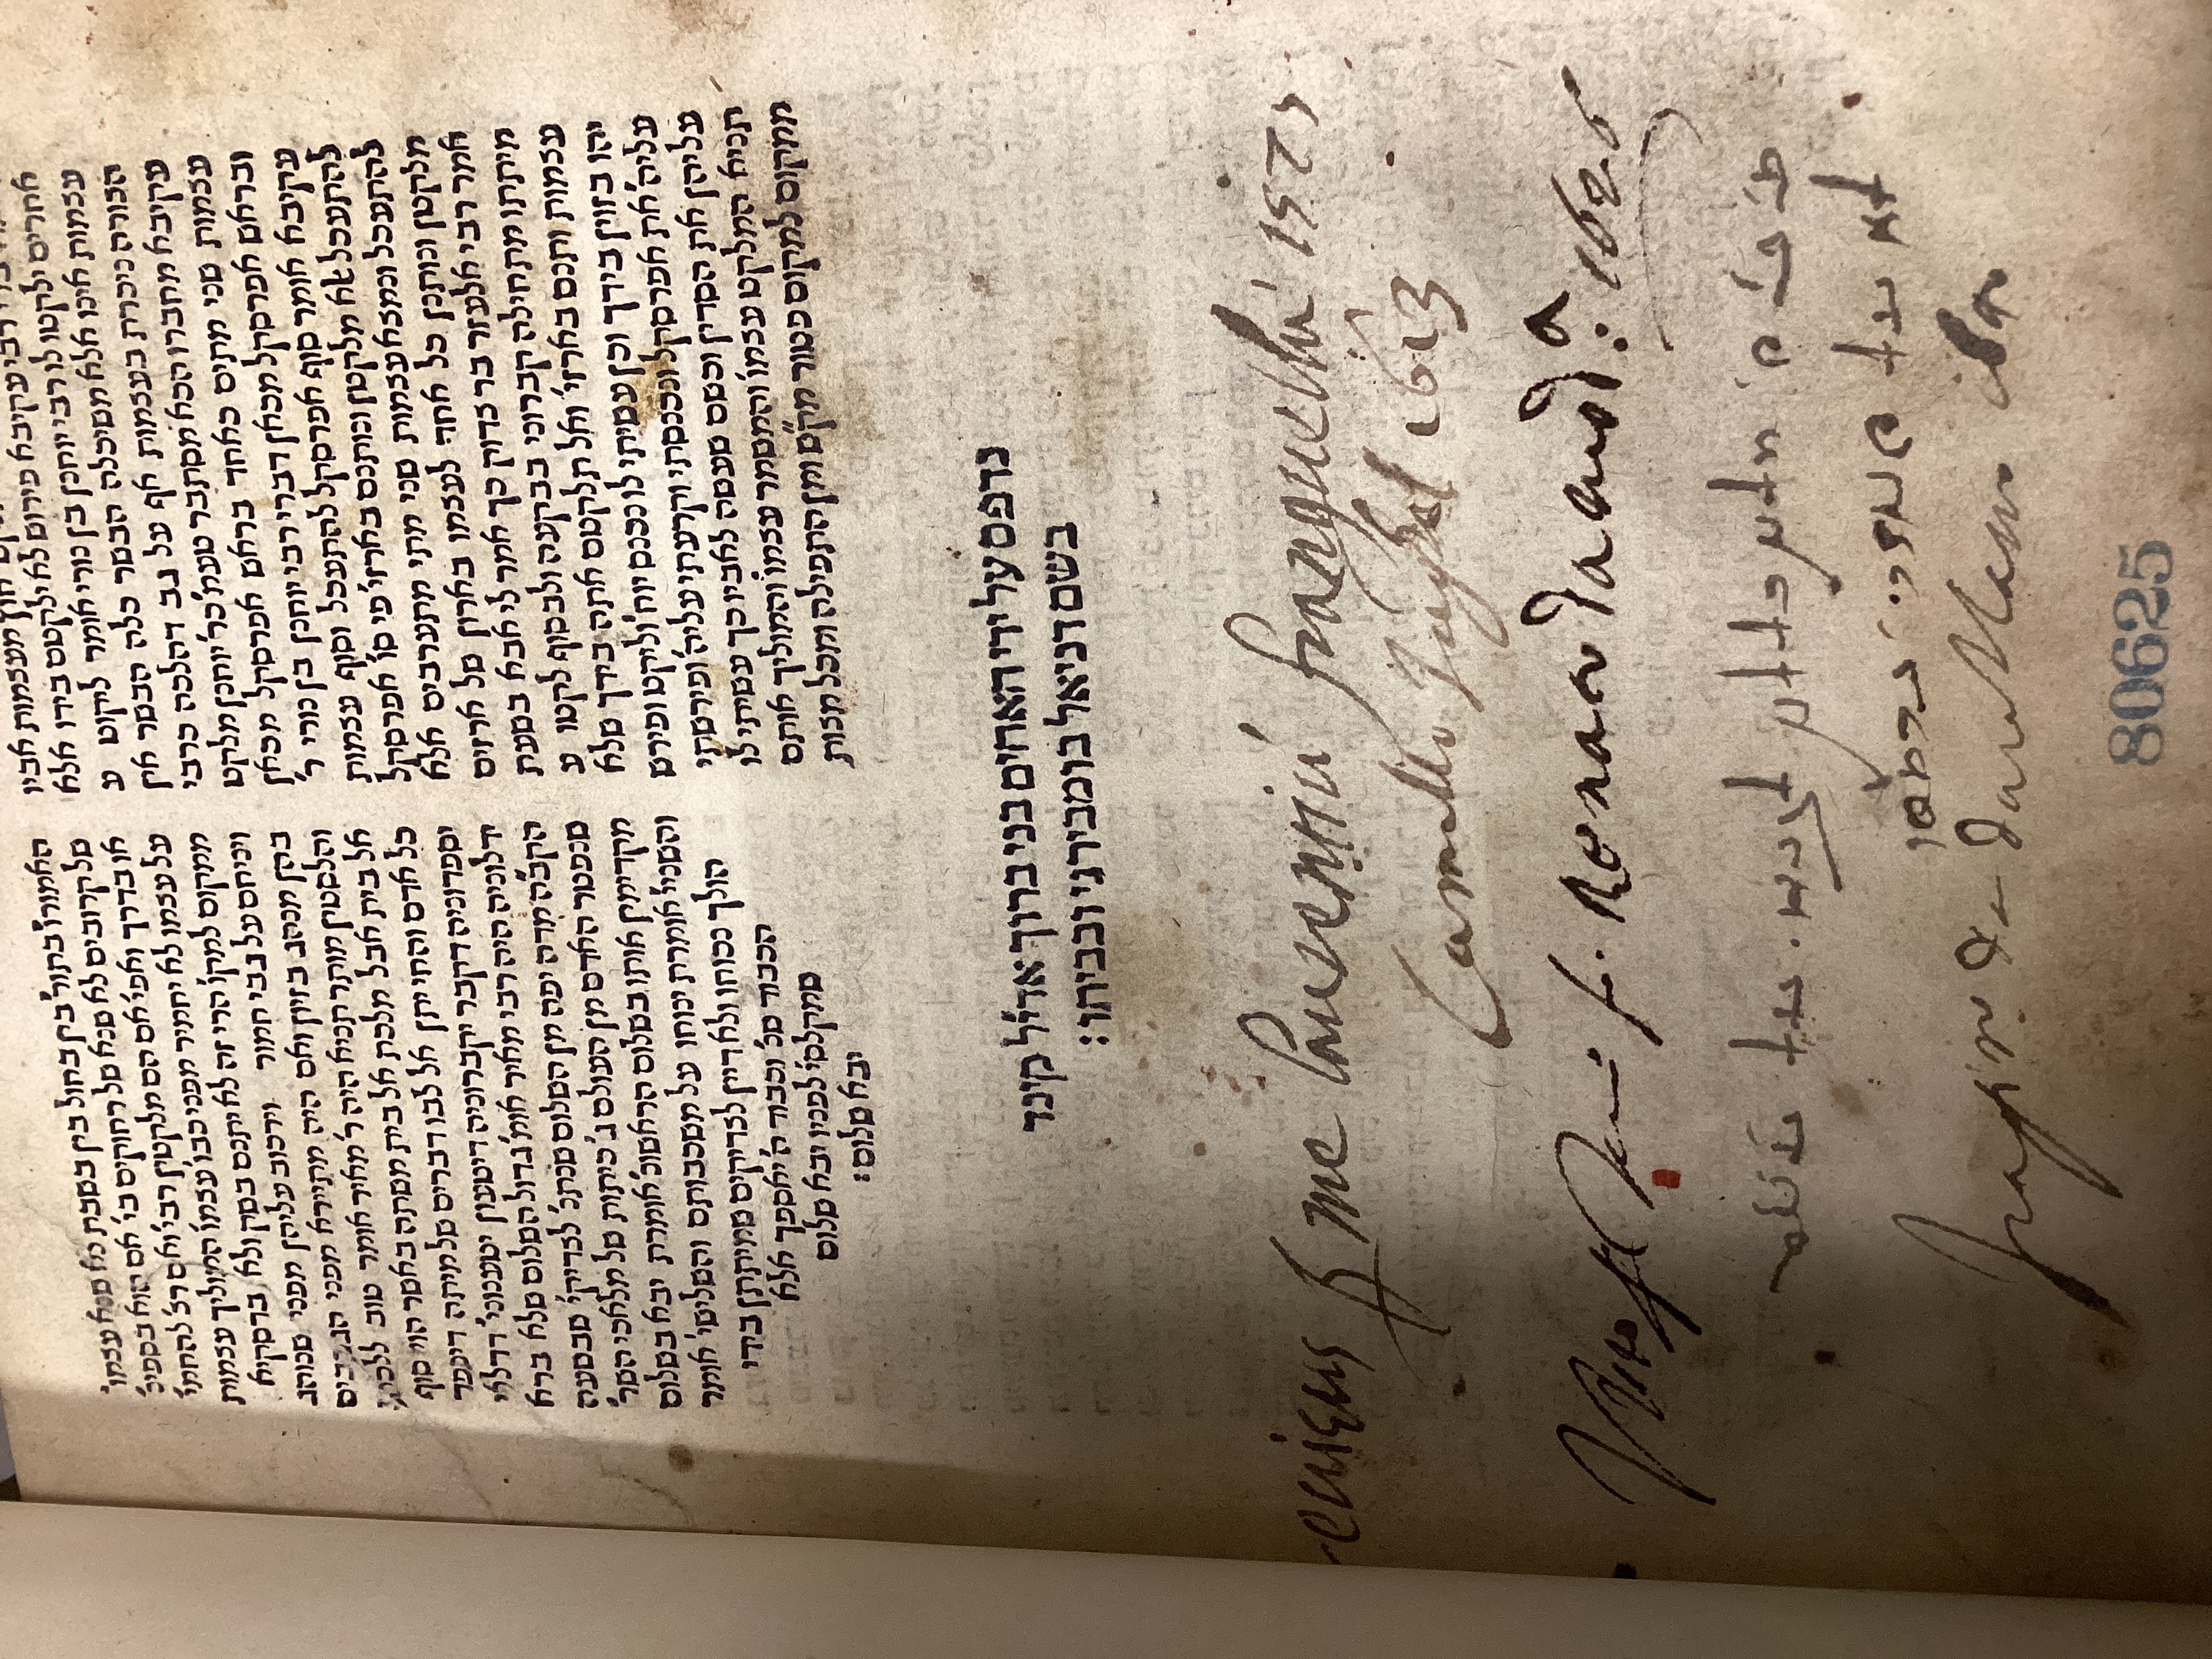 חוץ מעצמות אביו
רבי עקיבא פירוש לא ילקטם בידו אלא
אחרים ילקטו לו רבי יוחנן בן נורי אומר ליקוט ע
עצמות אינו אלא משיכלה הבשר כלה הבשר אין
הצורה ניכרת בעצמות אף על גב דהלכה כרבי
עקיבא מחברו הכא מסתבר טעמ' כר' יוחנן מלקט
עצמות שני מתים כאחד בראש אפרסקל מכאן
ובראש אפרסקל מכאן דברי רבי יוחנן בן נורי ר'
עקיבא אומר סוף אפרסקל להתעכל וסוף עצמות
להתעכל אלא מלקטן ונותנם בארזי' פי' סו' אפרסקל
להתעכל ונמצא עצמות שני מתי' מתערבים אלא
מלקטן ונותנן כל אחד לעצמו בארון של ארזים
אמר רבי אלעזר בר צדוק כך אמר לי אבא בשעת
מיתתו מתחילה קברוני בבקעה ולבסוף לקטו ע
עצמות ותנם בארזי' ואל תלקטם אתה בידך שלא
יהו בזוין בידך וכן עשיתי לו נכנס יוח' וליקט ופירש
עליה' את אפרסקל ונכנסתי וקרעתי עליה' ופירשתי
עליהן את הסדין וכשם שעשה לאביו כך עשיתי לו
תניא המלקט עצמו' והמשמר עצמו' והמוליך אותם
ממקום למקום פטור מק"ש ומן התפילה ומכל מצות
האמורו' בתור' בין בחול בין בשבת לא שנא עצמו'
של קרובים לא שנא של רחוקים בי' אם הוא בספינ'
או בדרך ואפי' אם הם מלקטין רבי' ואם רצ' להחמי'
על עצמו לא יחמיר מפני כבו' עצמו' המוליך עצמות
ממקום למקו' הרי זה לא יתנם בשק ולא בדסקיא
ויניחם על גבי חמור וירכוב עליהן מפני שנוהג
בהן מנהג בזיון ואם היה מתיירא מפני הגנבים
והלסטין מותר תניא היה ר' מאיר אומר טוב ללכת
אל בית אבל מלכת אל בית משתה באשר הוי' סוף
כל אדם והחי יתן אל לבו דברים של מיתה דיספד
יספדוניה דקבר יקברוניה דיטעון יטענוני' דדלאי
ידלוניה היה רבי מאיר אומ' גדול השלום שלא ברא
הקב"ה מדה יפה מן השלום שנתנ' לצדיקי' שבשעה
שנפטר האדם מן העולם ג' כיתות של מלאכי השר'
מקדימין אותו בשלום הראשונ' אומרת יבא בשלום
והשניי' אומרת ינוחו על משכבותם והשלישי' אומר
הולך נכוחו ולא דיין לצדיקים שמיתתן בידי
הכבוד שנ' וכבוד ה' יאספך אלא
שמקלסי' לפניו יבא שלום
יבא שלום:
נדפס על ידי האחים בני ברוך אדי"ל קינד
בשם דניאל בומבירגי ובביתו:
me Laurentiú franguellú 1575
Camillo Jaghel 1613
Renato da mod.a 1626
80625